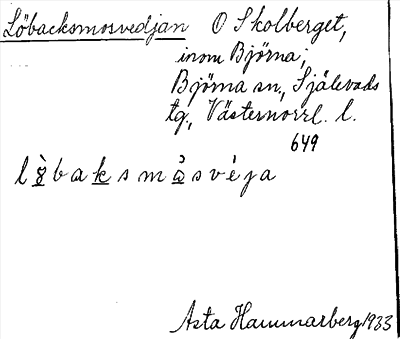 Löbacksmosvedjan O Skolberget,
inom Björna;
Björna sn, Själevads
tg., Västernorrl. l.
649
lö̀baksmòsvéja
Asta Hammarberg 1933